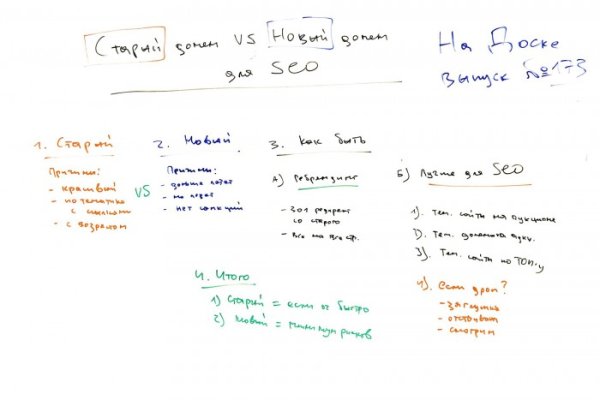 Старый домен VS Новый домен
для SEO
На Доске
выпуск №173
1. Старый
Причины:
- красивый
- по тематике
с ссылками
- с возрастом
VS
2. Новый
Причины:
- дольше
- нет санкций
3. Как быть
А) Ребрендинг
- 301 редирект
со старого
- Все на все стр.
Б) Лучше для SEO
1). Тем. сайты на аукционе
2). Тем. домены
3). Тем. сайты по ТОП-у
4). Если дроп?
- заглушка
- отстаивать
- смотрим
4. Итого
1) Старый = если быстро
2) Новый = минимум рисков